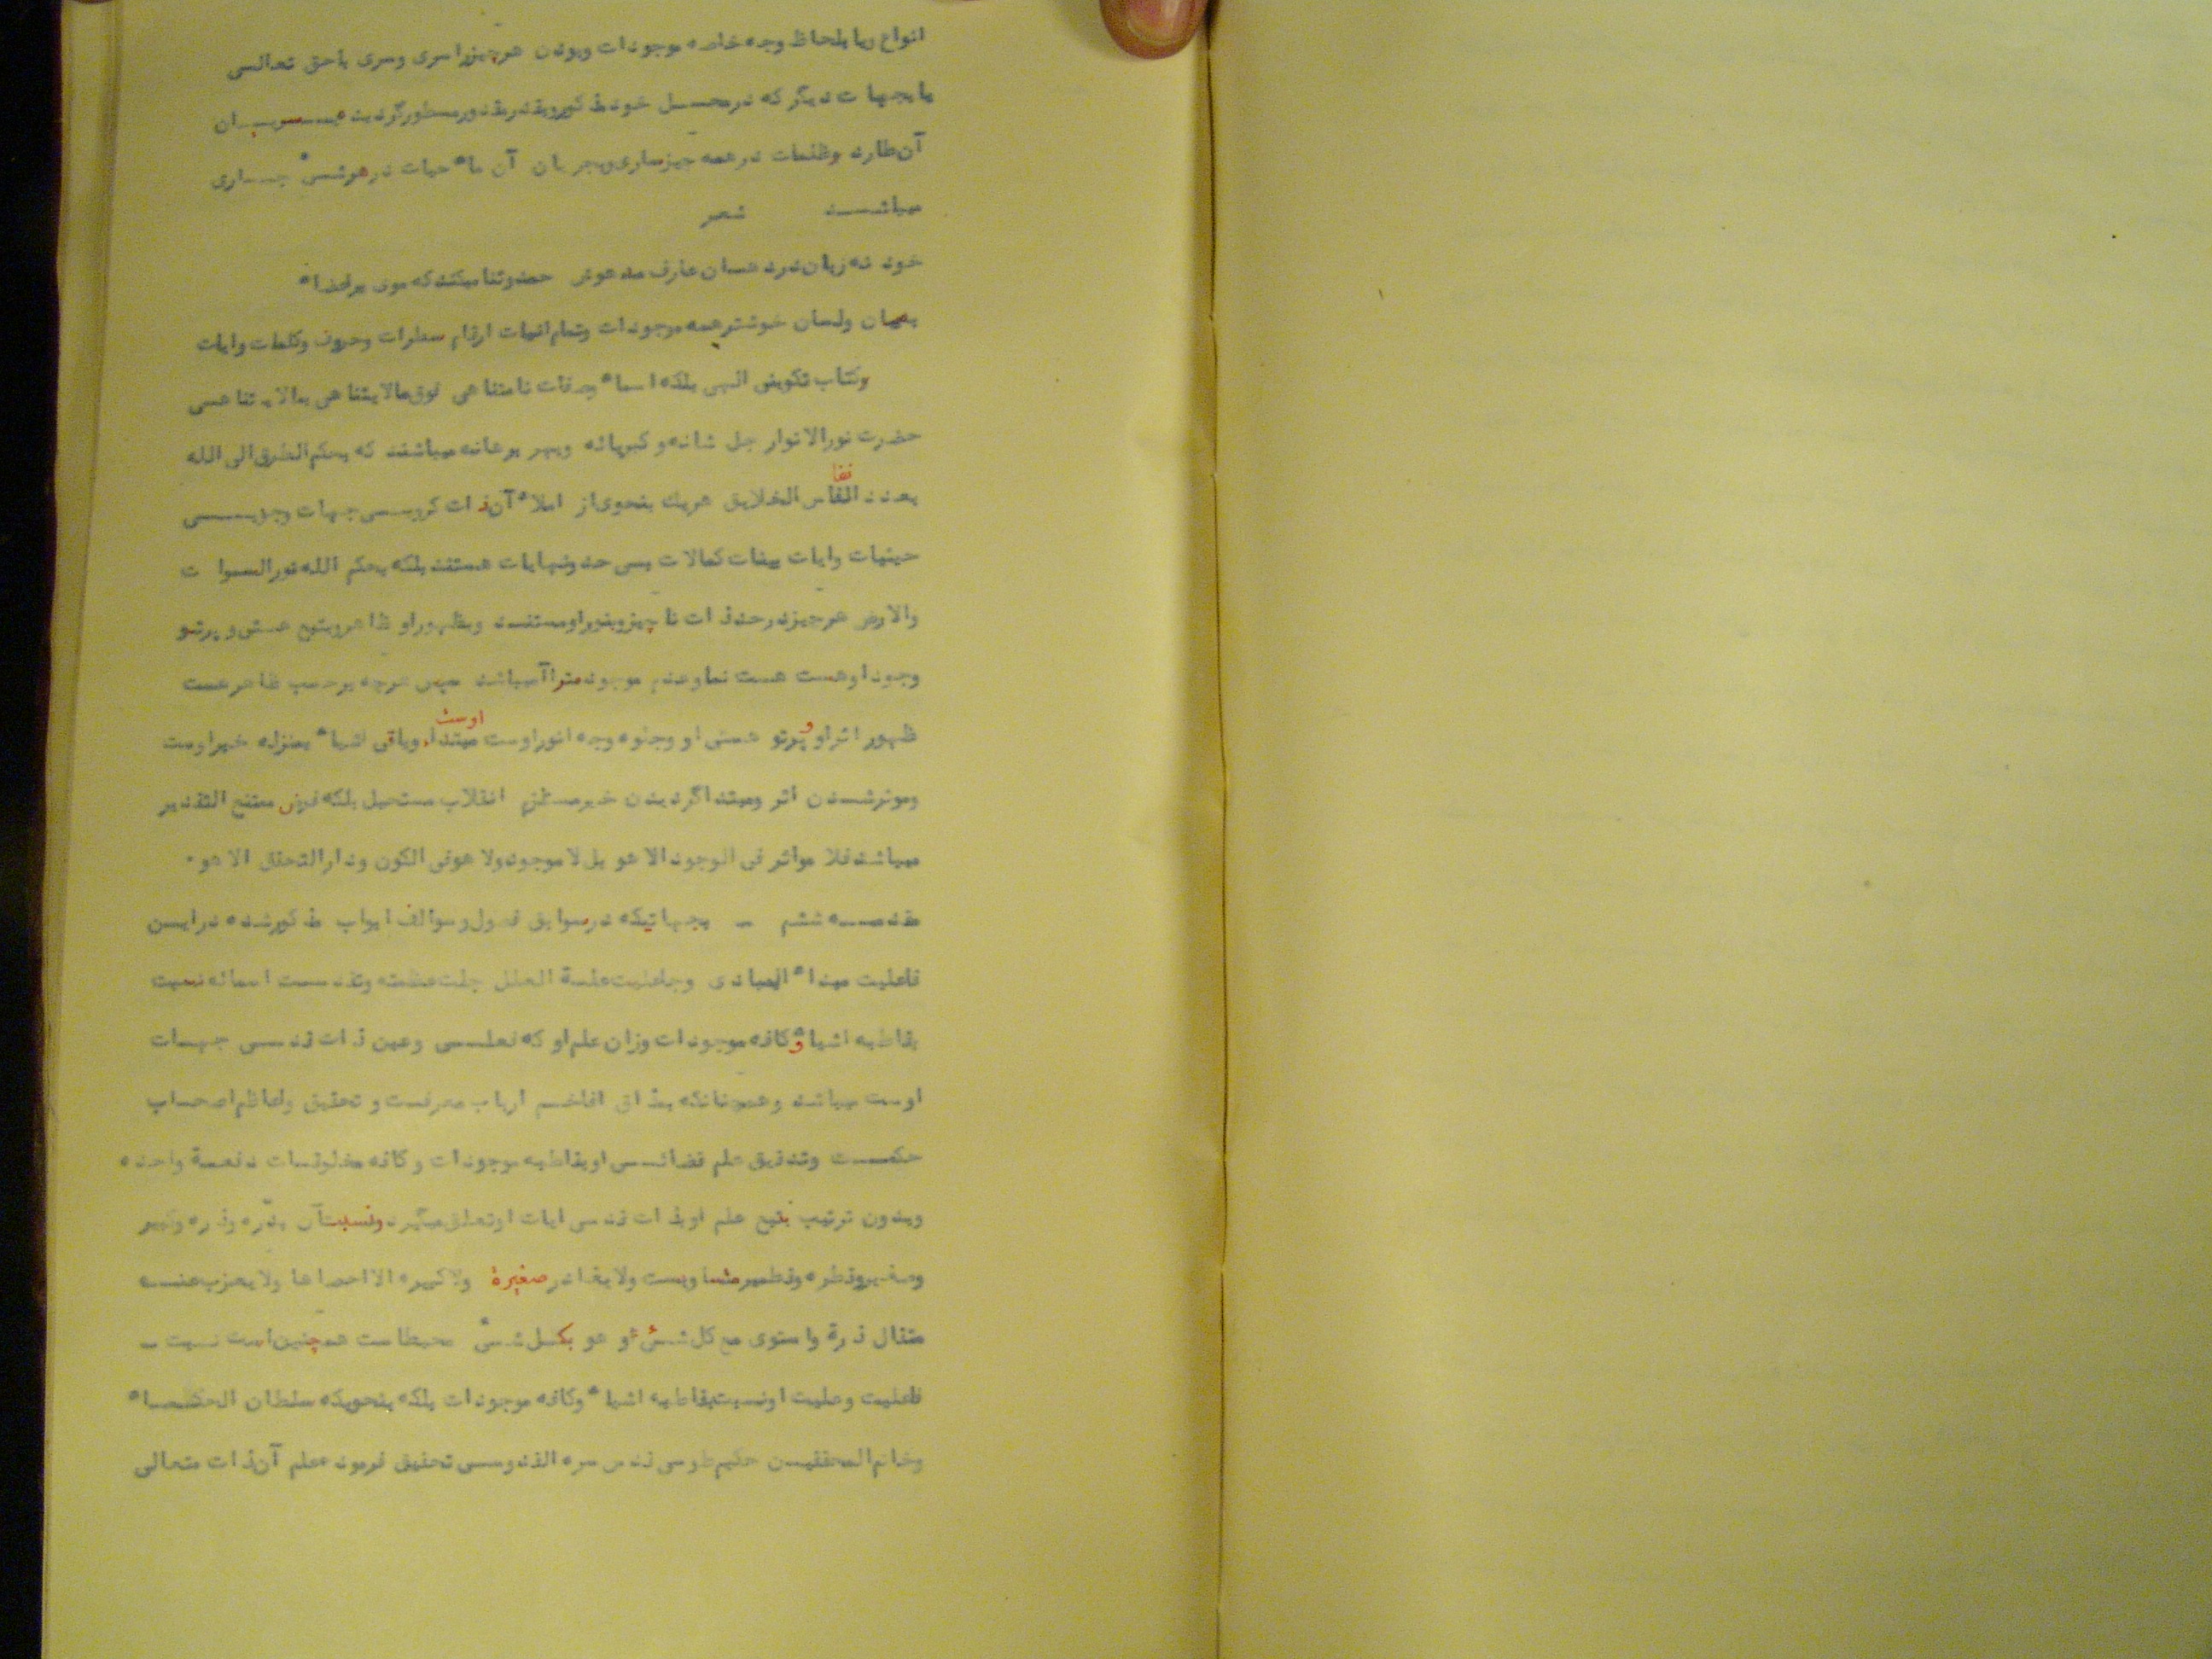 انواع ریا بلحاظ وجه خاصه موجودات وبودن هرچیزراسری وسری باحق تعالسی
یابجهات دیگر که درمحسل خود
آن طارد وظلمات درهمه چیزساری وبجریان آن ماء حیات درهرشیء جساری
میباشسد شعر
خود نه زبان دردهسان عارف مدهوش حمدوثنا میکندکه موی براعضاء
بهیان ولسان خوشترهمه موجودات وتمام انیات ارقام سطرات وحروف وکلمات وایات
وکتاب تکوینی الهی بلکه اسماء وصفات نامتناهی فوق مالایتناهی بمالایتناهسی
حضرت نورالانوار جل شانه و کبریائه وبهر برهانه میباشند که بحکم الطرق الی الله
نفا
بعدد انفاس الخلایق هریك بنحوی از املاء آن ذات کروبسی جهات وجوبسسی
حیثیات وایات بینات کمالات بیحد ونهایات هستند بلکه بحکم الله نورالسموات
والارض هرچیزدرحدذات ناچیزوبنوراومستنسد وبظهوراو ظاهروبتبع هستی و پرتو
وجود اوهست هست نماوعدم موجود متراآمیباشد سپس هرچه برحسب ظاهرهست
اوست
ظهور اثراو و پرتو هستی او وجلوه وجه انوراوست مبتدا، وباقی اشیاء بمنزله خبراوست
وموثرشسدن اثر ومبتداگردیدن خبرمستلزم انقلاب مستحیل بلکه فرض ممتنع التقدیر
میباشدفلا مواثر فی الوجود الا هو بل لا موجود ولا هوفی الکون ودارالتحقق الا هو۰
مقدمسه ششم ـ بجهاتیکه درسوابق فصول وسوالف ابواب مذکورشده درایسن
فاعلیت مبداء المبادی وجاعلیت علسة العلل جلت عظمته وتقدسست اسمائه نسبت
بقاطبه اشیاء و کافه موجودات وزان علم او که فعلسی وعین ذات قدسسی جهسات
اوست میباشد وهمچنانکه بمذاق افاخسم ارباب معرفست و تحقیق واعاظم اصحساب
حکمست وتدقیق علم قضائسی اوبقاطبه موجودات و کافه مخلوقسات دفعسة واحده
وبدون ترتیب بتبع علم اوبذات قدسی ایات اوتعلق میگیرد ونسبت آن بذره وذره وکبیر
وصغیروقطره وقطمیر متساویست ولا یغادر صغیرة ولا کبیره الا احصاها ولا یعزب عنسه
مثقال ذرة واستوی مع کل شسیء و هو بکسل شسیء محیط است همچنین است نسبت ـ
فاعلیت وعلیت اونسبت بقاطبه اشیاء وکافه موجودات بلکه بنحویکه سلطان الحکمساء
وخاتم المحققیسن حکیم طوسی قدس سره القدوسسی تحقیق فرموده علم آن ذات متعالی